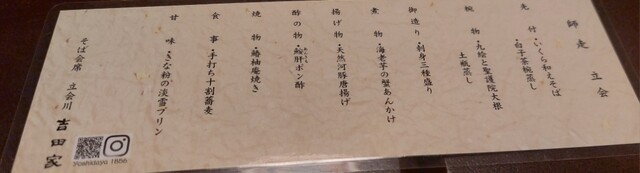 師走 立会
先付・いくら和えそば
・白子茶碗蒸し
椀物・九絵と聖護院大根
土瓶蒸し
御造り・刺身三種盛り
煮物・海老芋の蟹あんかけ
揚げ物・天然河豚唐揚げ
酢の物・鮟肝ポン酢
焼物・鰆柚庵焼き
食事・手打ち十割蕎麦
甘味・きな粉の淡雪プリン
そば会席 立会川 吉田家
Yoshidaya 1856